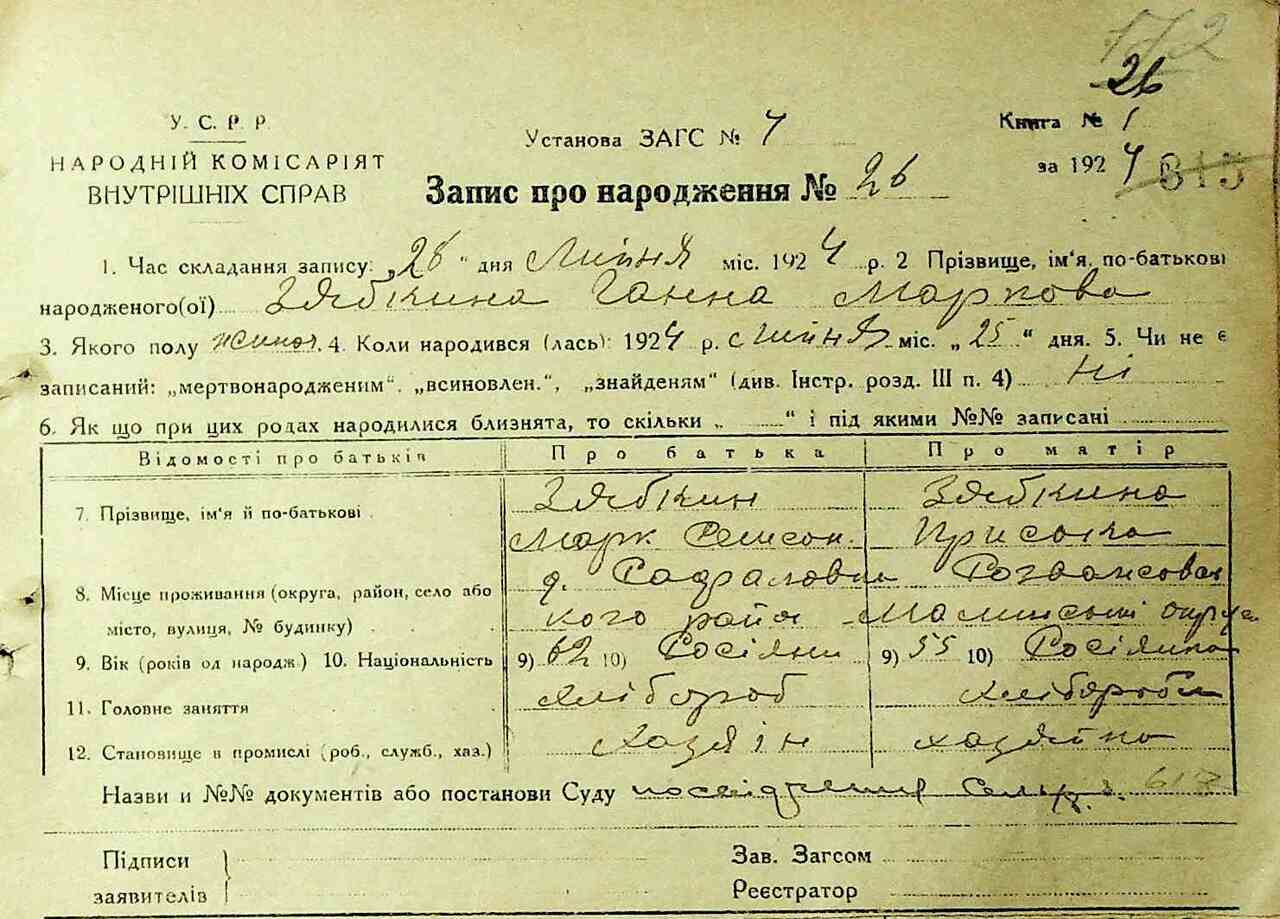 172
26
У. С. Р. Р.
НАРОДНІЙ КОМІСАРІЯТ
ВНУТРІШНІХ СПРАВ
Установа ЗАГС № 7
Книга № 1
за 1924 р. 615
Запис про народження № 26
1. Час складання запису: „26" дня Липня міс. 1924 р. 2 Прізвище, ім'я, по-батькові
народженого(ої) Зябкина Ганна Маркова
3. Якого полу жиноч. 4. Коли народився (лась): 1924 р. Липня міс. „25" дня. 5. Чи не є
записаний: „мертвонародженим", „всиновлен.", „знайденям" (див. Інстр. розд. III п. 4) Ні
6. Як що при цих родах народилися близнята, то скільки „ " і під якими №№ записані
Відомості про батьків Про батька Про матір
7. Прізвище, ім'я й по-батькові Зябкин Зябкина
Марк Самсон. Приська
8. Місце проживання (округа, район, село або д.
місто, вулиця, № будинку) кого район округи
9. Вік (років од народж.) 10. Національність 9) 62 10) Росіянин 9) 55 10) Росіянка
11. Головне заняття хлібороб хліборобка
12. Становище в промислі (роб., служб., хаз.) хазяін хазяйка
Назви и №№ документів або постанови Суду посвідчення Сельр. 613
Підписи
заявителів
Зав. Загсом
Реєстратор